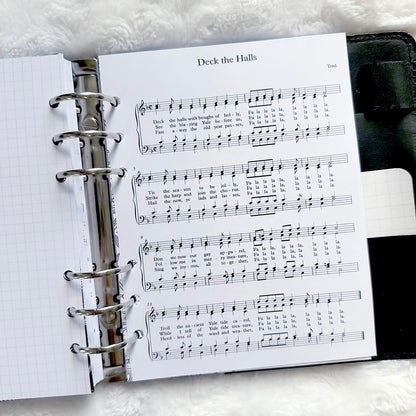 Deck the Halls
Trad
Deck the halls with boughs of hol - ly, Fa la la la la, la la la la.
See the bla - zing Yule be - fore us, Fa la la la la, la la la la.
Fast a - way the old year pas - ses, Fa la la la la, la la la la.
5
'Tis the sea - son to be jol - ly, Fa la la la la, la la la la.
Strike the harp and join the cho - rus, Fa la la la la, la la la la.
Hail the new, ye lads and las - ses, Fa la la la la, la la la la.
9
Don we now our gay ap - pa - rel, Fa la la la la, la la la la.
Fol - low me in mer - ry mea - sure, Fa la la la la, la la la la.
Sing we joy - ous, all to - ge - ther, Fa la la la la, la la la la.
13
Troll the an - cient Yule tide ca - rol, Fa la la la la, la la la la.
While I tell of Yule tide mea - sure, Fa la la la la, la la la la.
Heed - less of the wind and wea - ther, Fa la la la la, la la la la.